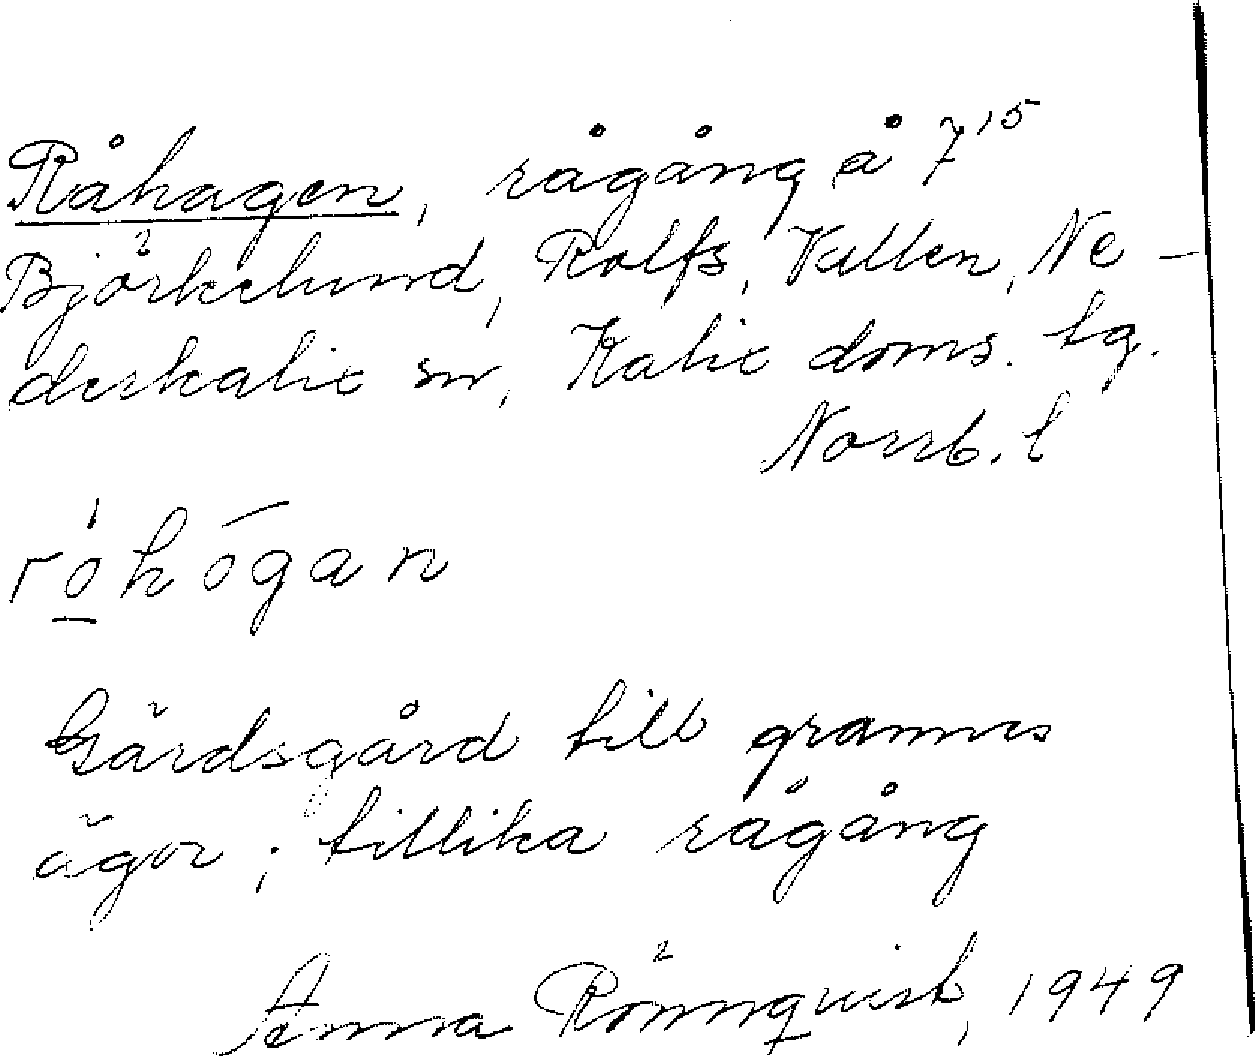 Råhagen, rågång å 7¹⁵
Björkelund, Rolfs, Vallen, Ne-
derkalix sn, Kalix doms. tg.
Norrb. l
róhógan
Gärdsgård till grannes
ägor; tillika rågång
Anna Rönnquist, 1949